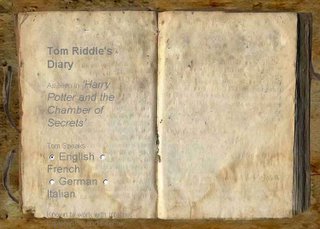 Tom Riddle's
Diary
As seen in 'Harry
Potter and the
Chamber of
Secrets'
Tom Speaks
English
French
German
Italian